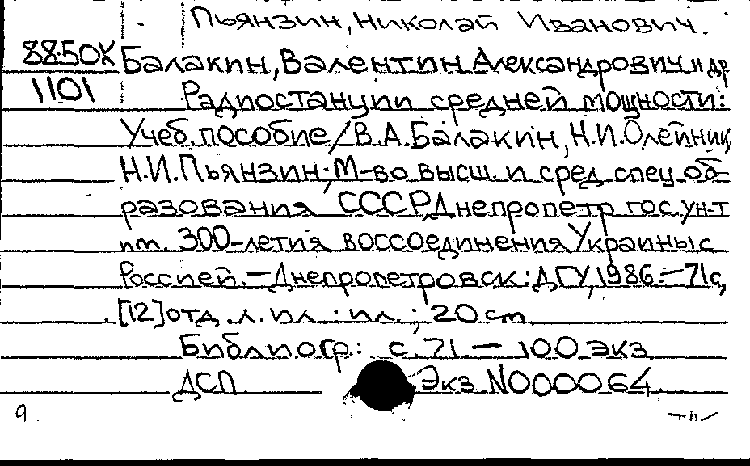 Пьянзин, Николай Иванович.
88-50К Балакин, Валентин Александрович и др
1101 Радиостанции средней мощности:
Учеб. пособие / В.А. Балакин, Н.И. Олейник,
Н.И. Пьянзин; М-во высш. и сред. спец. об
разования СССР, Днепропетр. гос. ун-т
им. 300-летия воссоединения Украины с
Россией. — Днепропетровск: ДГУ, 1986. — 71 с,
[12] отд. л. ил : ил. ; 20 см
Библиогр: с. 71 — 100 экз
ДСП Экз N000064
9